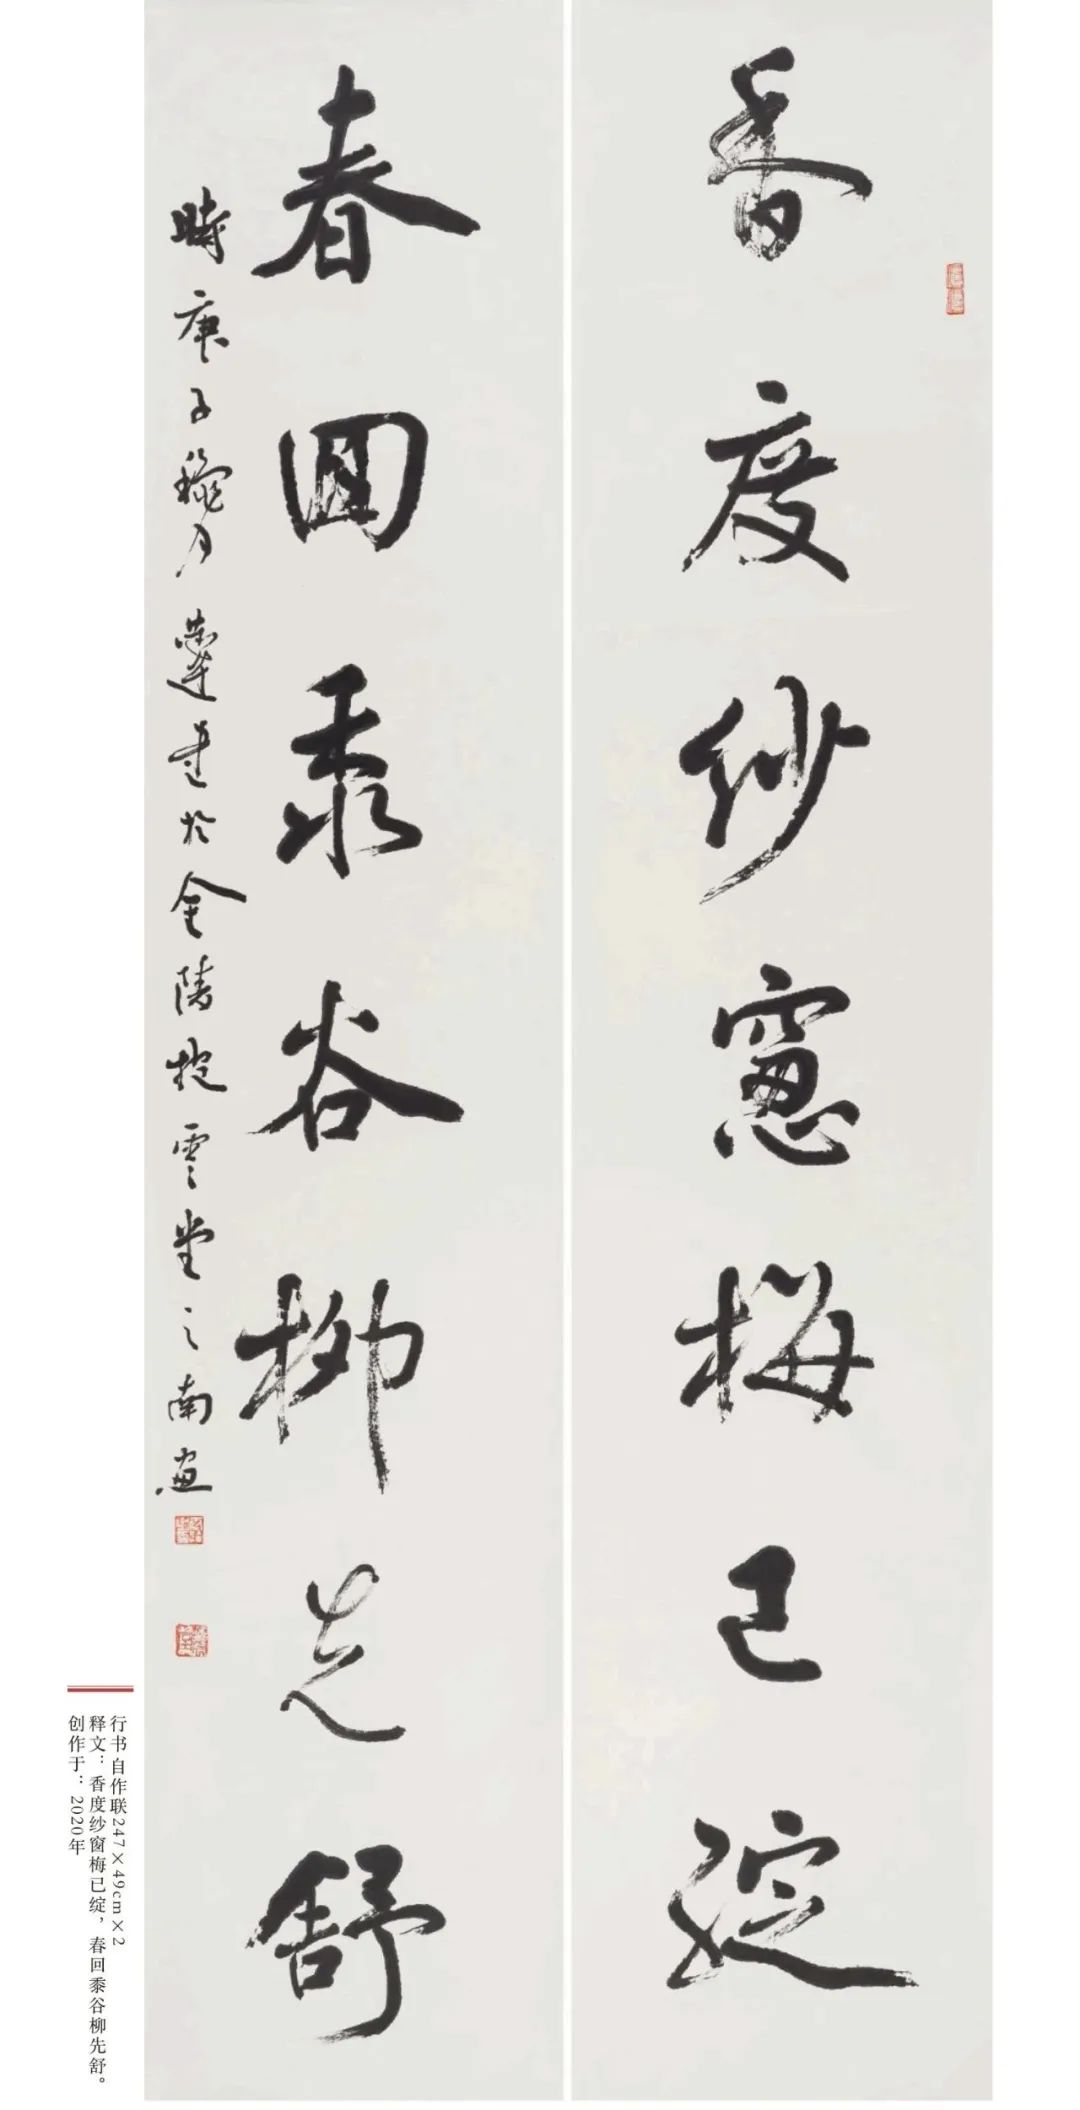 香度纱窓梅已綻
春回黍谷柳先舒
時庚子穐月 建於金陵挹雲堂之南窗
行书自作联247×49cm×2
释文：香度纱窗梅已绽，春回黍谷柳先舒。
创作于：2020年